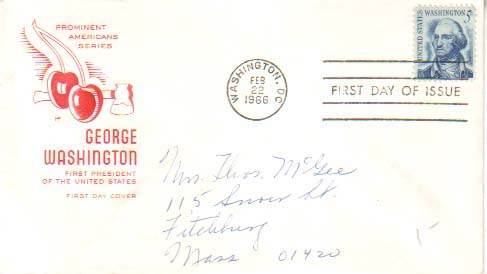 PROMINENT
AMERICANS
SERIES
GEORGE
WASHINGTON
FIRST PRESIDENT
OF THE UNITED STATES
FIRST DAY COVER
WASHINGTON, DC
FEB
22
1966
FIRST DAY OF ISSUE
UNITED STATES
WASHINGTON 5c
Mrs. Thos. McGee
115 Snow St.
Fitchburg
Mass 01420